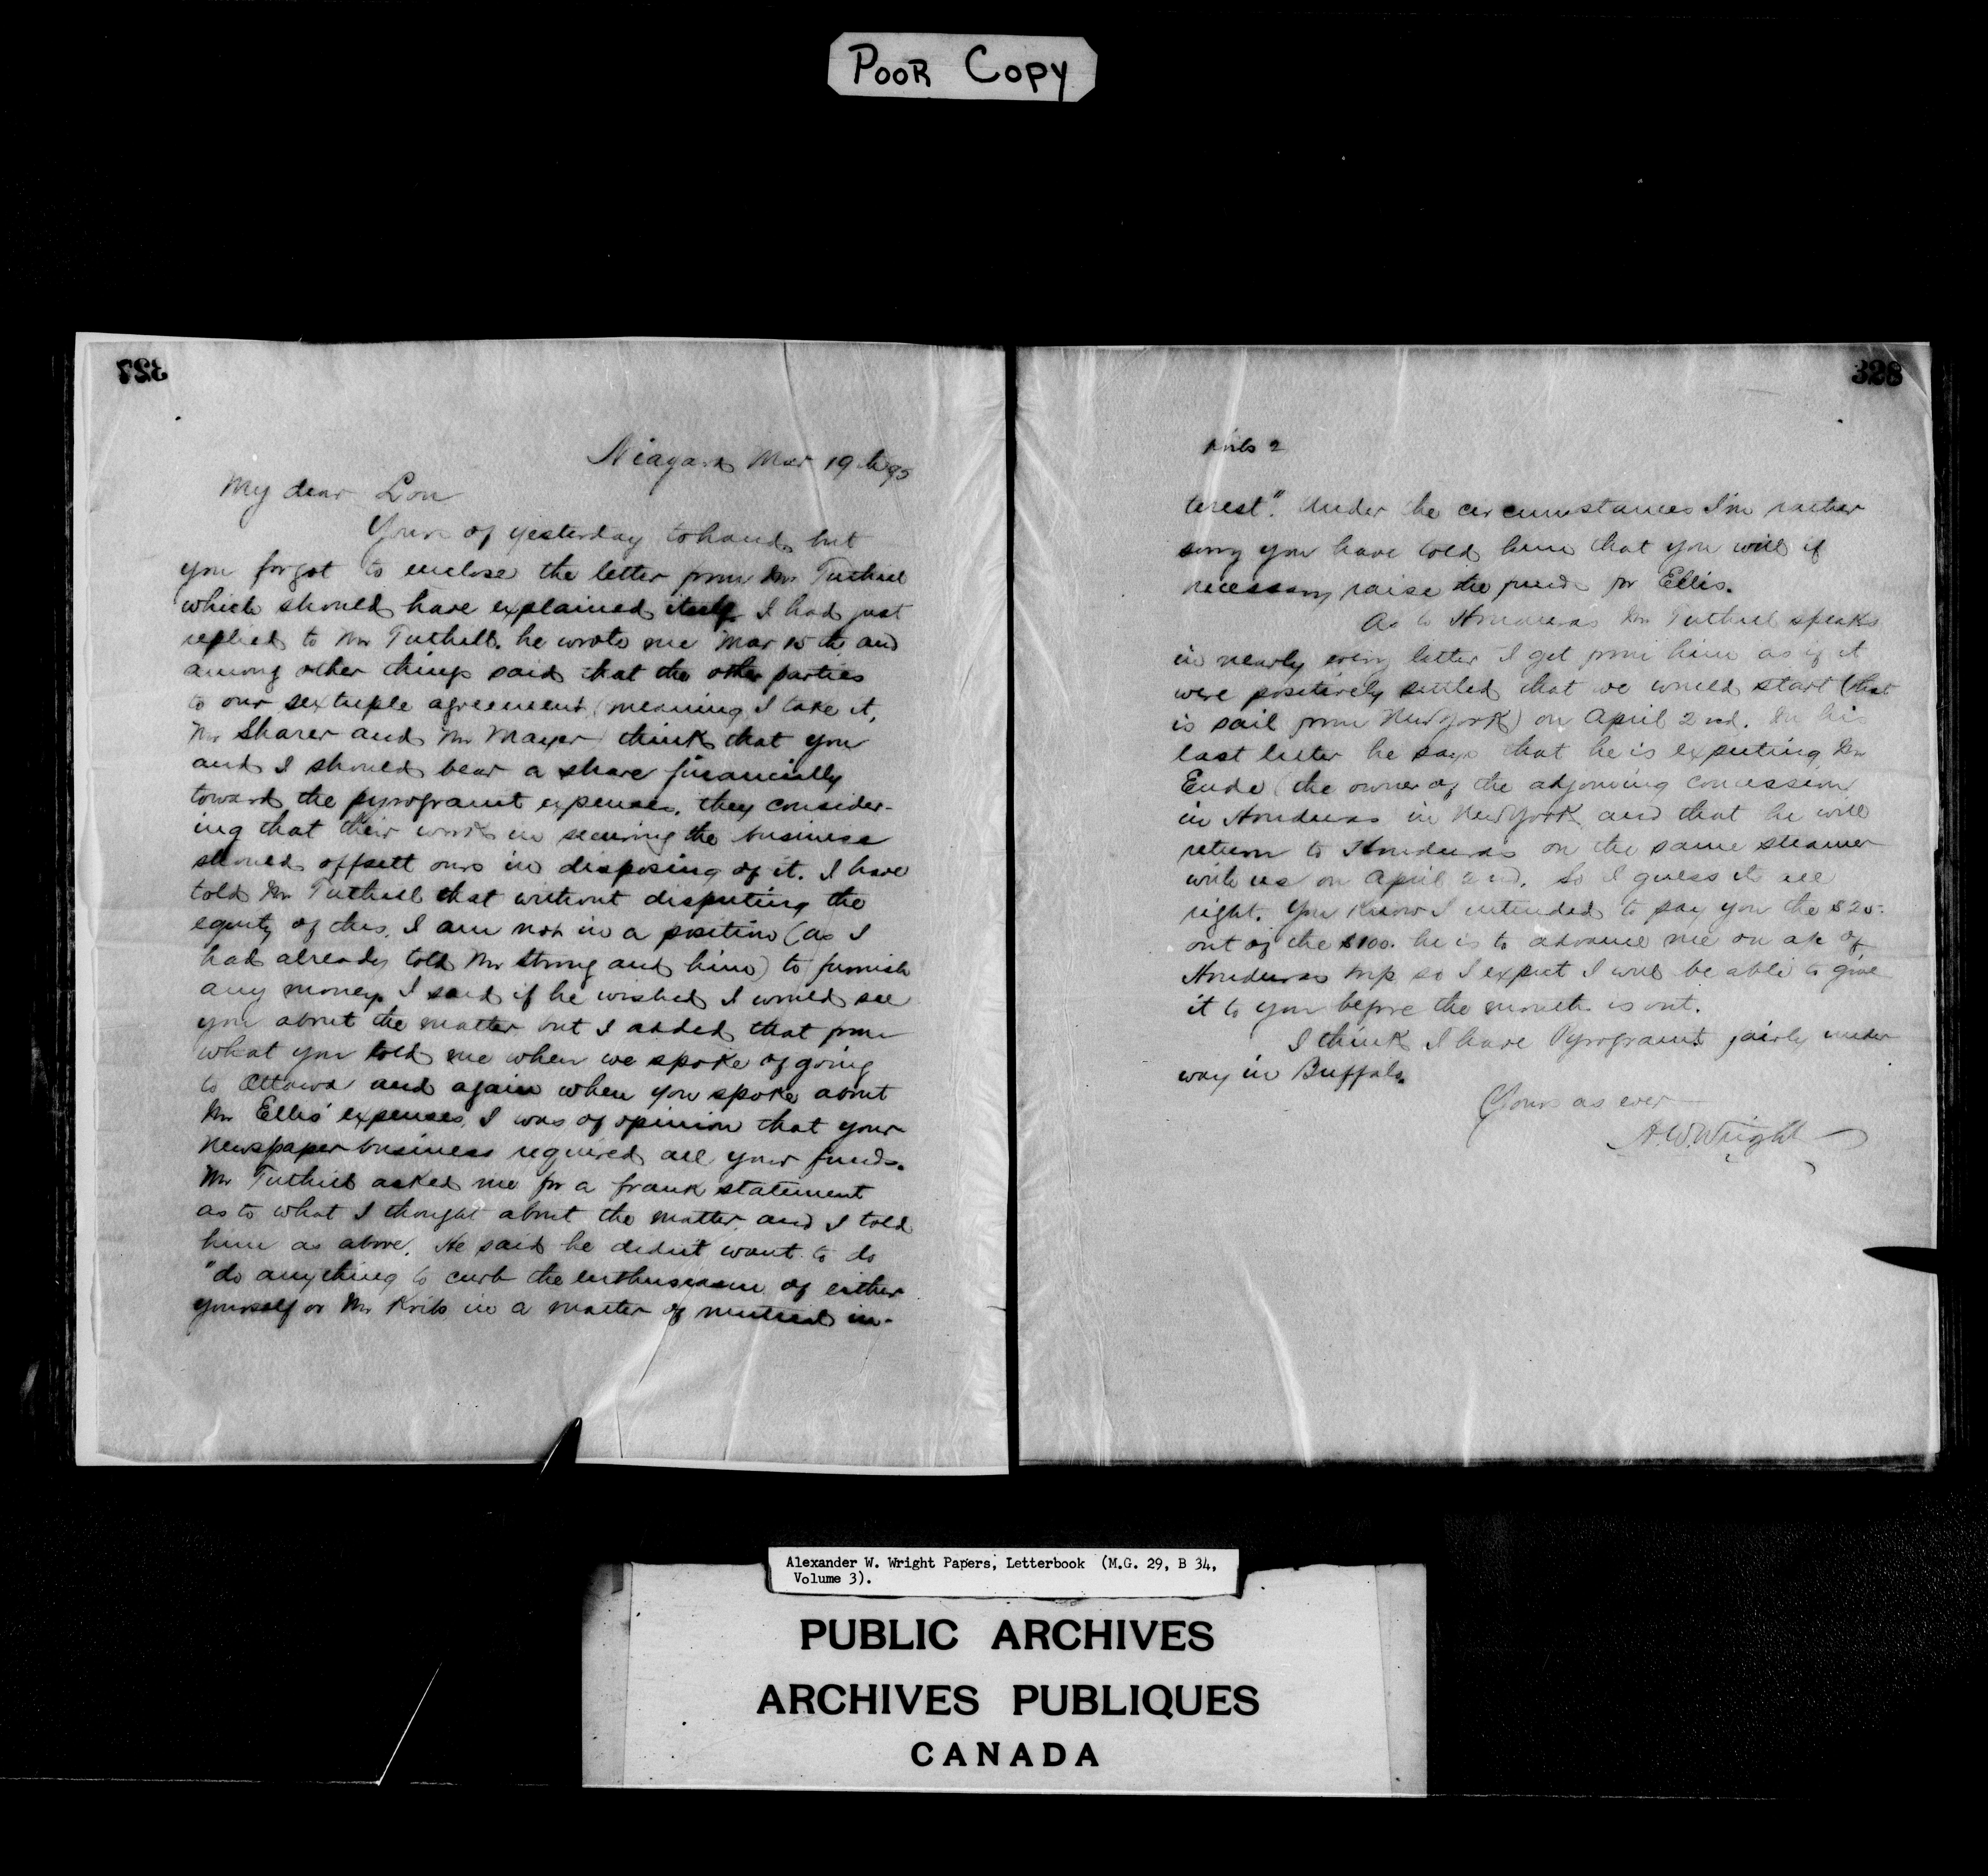 POOR COPY
327
Niagara Mar 19th 95
My dear Lou
Yours of yesterday to hand but
you forgot to enclose the letter from Mr Tuthill
which should have explained itself I had just
replied to Mr Tuthill. he wrote me Mar 15th and
among other things said that the other parties
to our sextuple agreement (meaning I take it,
Mr Sharer and Mr Mayer) think that you
and I should bear a share financially
toward the pyrogranit expenses, they consider-
ing that their work in securing the business
should offsett ours in disposing of it. I have
told Mr Tuthill that without disputing the
equity of this, I am not in a position (as I
had already told Mr Strong and him) to furnish
any money. I said if he wished I would see
you about the matter but I added that from
what you told me when we spoke of going
to Ottawa and again when you spoke about
Mr Ellis' expenses, I was of opinion that your
newspaper business required all your funds.
Mr Tuthill asked me for a frank statement
as to what I thought about the matter and I told
him as above. He said he didn't want to do
"do anything to curb the enthusiasm of either
yourself or Mr Kribs in a matter of mutual in-
328
Kribs 2
terest". Under the circumstances I'm rather
sorry you have told him that you will if
necessary raise the funds for Ellis.
As to Honduras Mr Tuthill speaks
in nearly every letter I get from him as if it
were positively settled that we would start (that
is sail from New York) on April 2nd. In his
last letter he says that he is expecting Mr
Eude (the owner of the adjoining concession
in Honduras in New York and that he will
return to Honduras on the same steamer
with us on April 2nd. So I guess its all
right. You know I intended to pay you the $25.
out of the $100. he is to advance me on a/c of
Honduras trip so I expect I will be able to give
it to you before the month is out.
I think I have Pyrogranit fairly under
way in Buffalo.
Yours as ever
A.W. Wright
Alexander W. Wright Papers, Letterbook (M.G. 29, B 34,
Volume 3).
PUBLIC ARCHIVES
ARCHIVES PUBLIQUES
CANADA